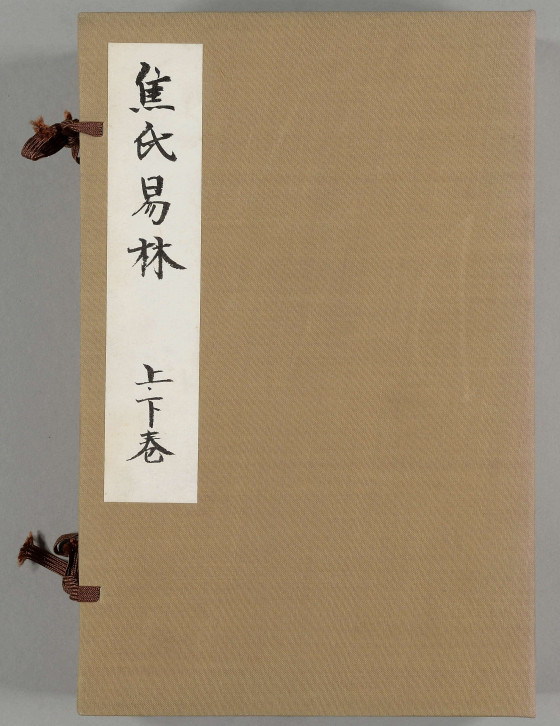 焦氏易林 上・下巻